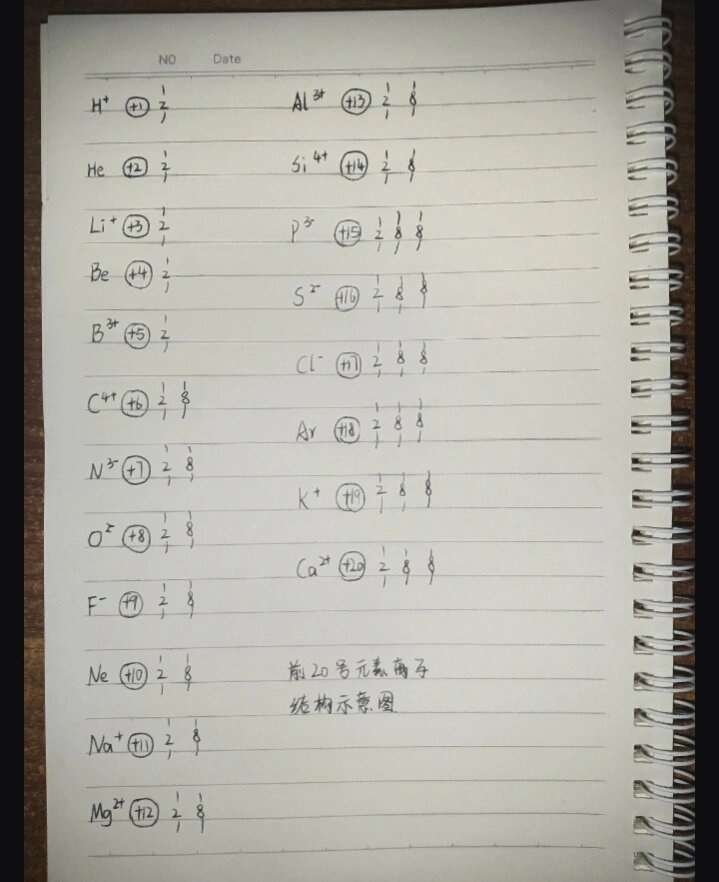 NO Date
H⁺ +1 2
He +2 2
Li⁺ +3 2
Be +4 2
B³⁺ +5 2
C⁴⁺ +6 2 8
N³⁻ +7 2 8
O²⁻ +8 2 8
F⁻ +9 2 8
Ne +10 2 8
Na⁺ +11 2 8
Mg²⁺ +12 2 8
Al³⁺ +13 2 8
Si⁴⁺ +14 2 8
P³⁻ +15 2 8 8
S²⁻ +16 2 8 8
Cl⁻ +17 2 8 8
Ar +18 2 8 8
K⁺ +19 2 8 8
Ca²⁺ +20 2 8 8
前20号元素离子
结构示意图